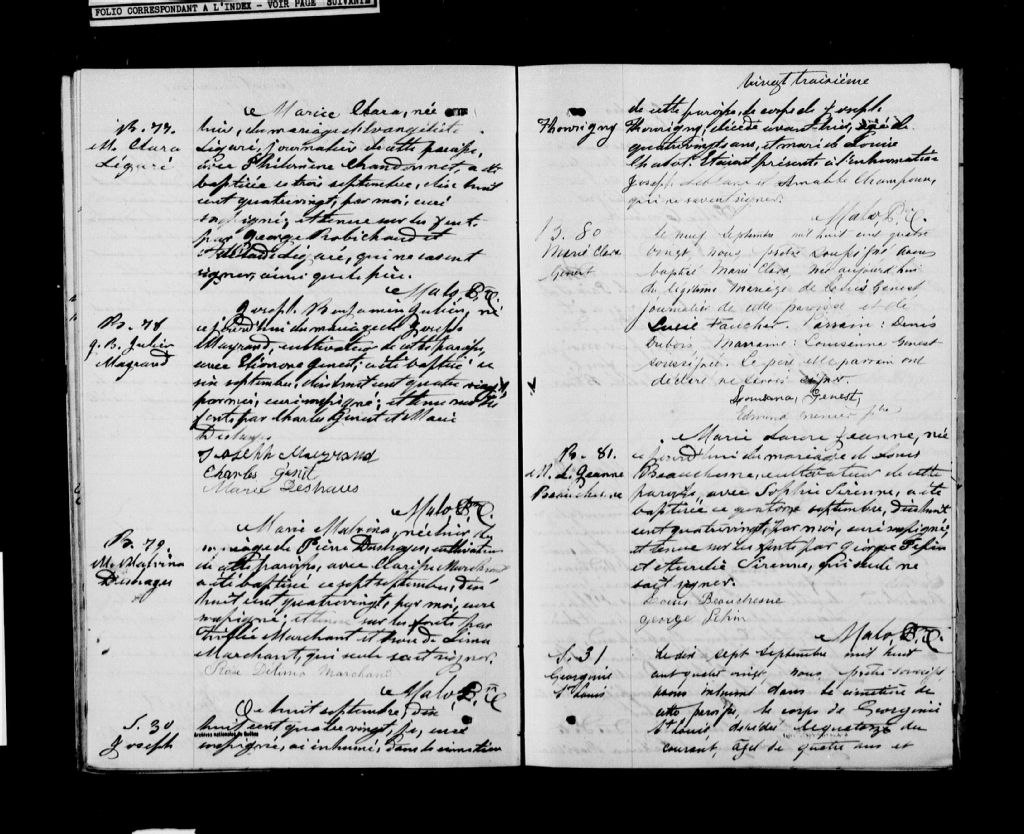 FOLIO CORRESPONDANT A L'INDEX - VOIR PAGE SUIVANTE
B. 77.
M. Clara
Légaré
Marie Clara, née
hier, du mariage d'Evangéliste
Légaré, journalier de cette paroisse,
avec Philomène Chandonnet, a été
baptisée ce trois septembre, dix huit
cent quatrevingt, par moi, curé
soussigné, et tenue sur les fonts
par George Robichaud et
Légaré, qui ne savent
signer, ainsi que le père.
Malo, Ptre C.
B. 78
J. B. Julien
Magrand
Joseph Benjamin Julien, né
ce jourd'hui du mariage de Joseph
Maygrand, cultivateur de cette paroisse,
avec Eléonore Genest, a été baptisé ce
six septembre, dix huit cent quatre vingt,
par moi, curé soussigné, et tenu sur les
fonts par Charles Genest et Marie
Deshayes
Joseph Maygrand
Charles Genest
Marie Deshaies
Malo, Ptre C.
B. 79.
M. Malvina
Deshayes
Marie Malvina, née hier du
mariage de Pierre Deshayes, cultivateur
de cette paroisse, avec Clarisse Marchand
a été baptisée ce sept septembre, dix
huit cent quatrevingt, par moi, curé
soussigné, et tenue sur les fonts par
Marchant et Rose de Lima
Marchant, qui seule sait signer.
Rose Délima Marchand
Malo, Ptre C.
S. 30
Joseph
Ce huit septembre, dix
huit cent quatre vingt, je, curé
soussigné, ai inhumé, dans le cimetière
Archives nationales du Québec
vingt troisième
Thovrigny
de cette paroisse, le corps de Joseph
Thovrigny, décédé avant hier, âgé de
quatrevingts ans, et mari de Louise
Chabot. Etaient présents à l'inhumation
Joseph Leblanc et Amable Champoux,
qui ne savent signer.
Malo, Ptre C.
B. 80
Marie Clara
Genest
Le neuf Septembre mil huit cent quatre
vingt nous prêtre soussigné avons
baptisé Marie Clara, née aujourd'hui
du légitime mariage de Louis Genest
journalier de cette paroisse et de
Lucie Faucher. Parrain: Denis
Dubois Marraine: Louisianna Genest
soussignée. Le père et le parrain ont
déclaré ne savoir signer.
Louisiana, Genest,
Edmund Grenier ptre
B. 81.
M. L. Jeanne
Beauchesne
Marie Laure Jeanne, née
ce jourd'hui du mariage de Louis
Beauchesne, cultivateur de cette
paroisse, avec Sophie Sirenne, a été
baptisée ce quatorze septembre, dix huit
cent quatrevingt, par moi, curé soussigné,
et tenue sur les fonts par George Pépin
et Aurélie Sirenne, qui seule ne
sait signer.
Louis Beauchesne
George Pépin
Malo Ptre C.
S. 31
Georginie
St Louis
Le dix sept Septembre mil huit
cent quatre vingt, nous, prêtre soussigné
avons inhumé dans le cimetière de
cette paroisse, le corps de Georginie
St Louis, décédée le quatorze du
courant, âgée de quatre ans et